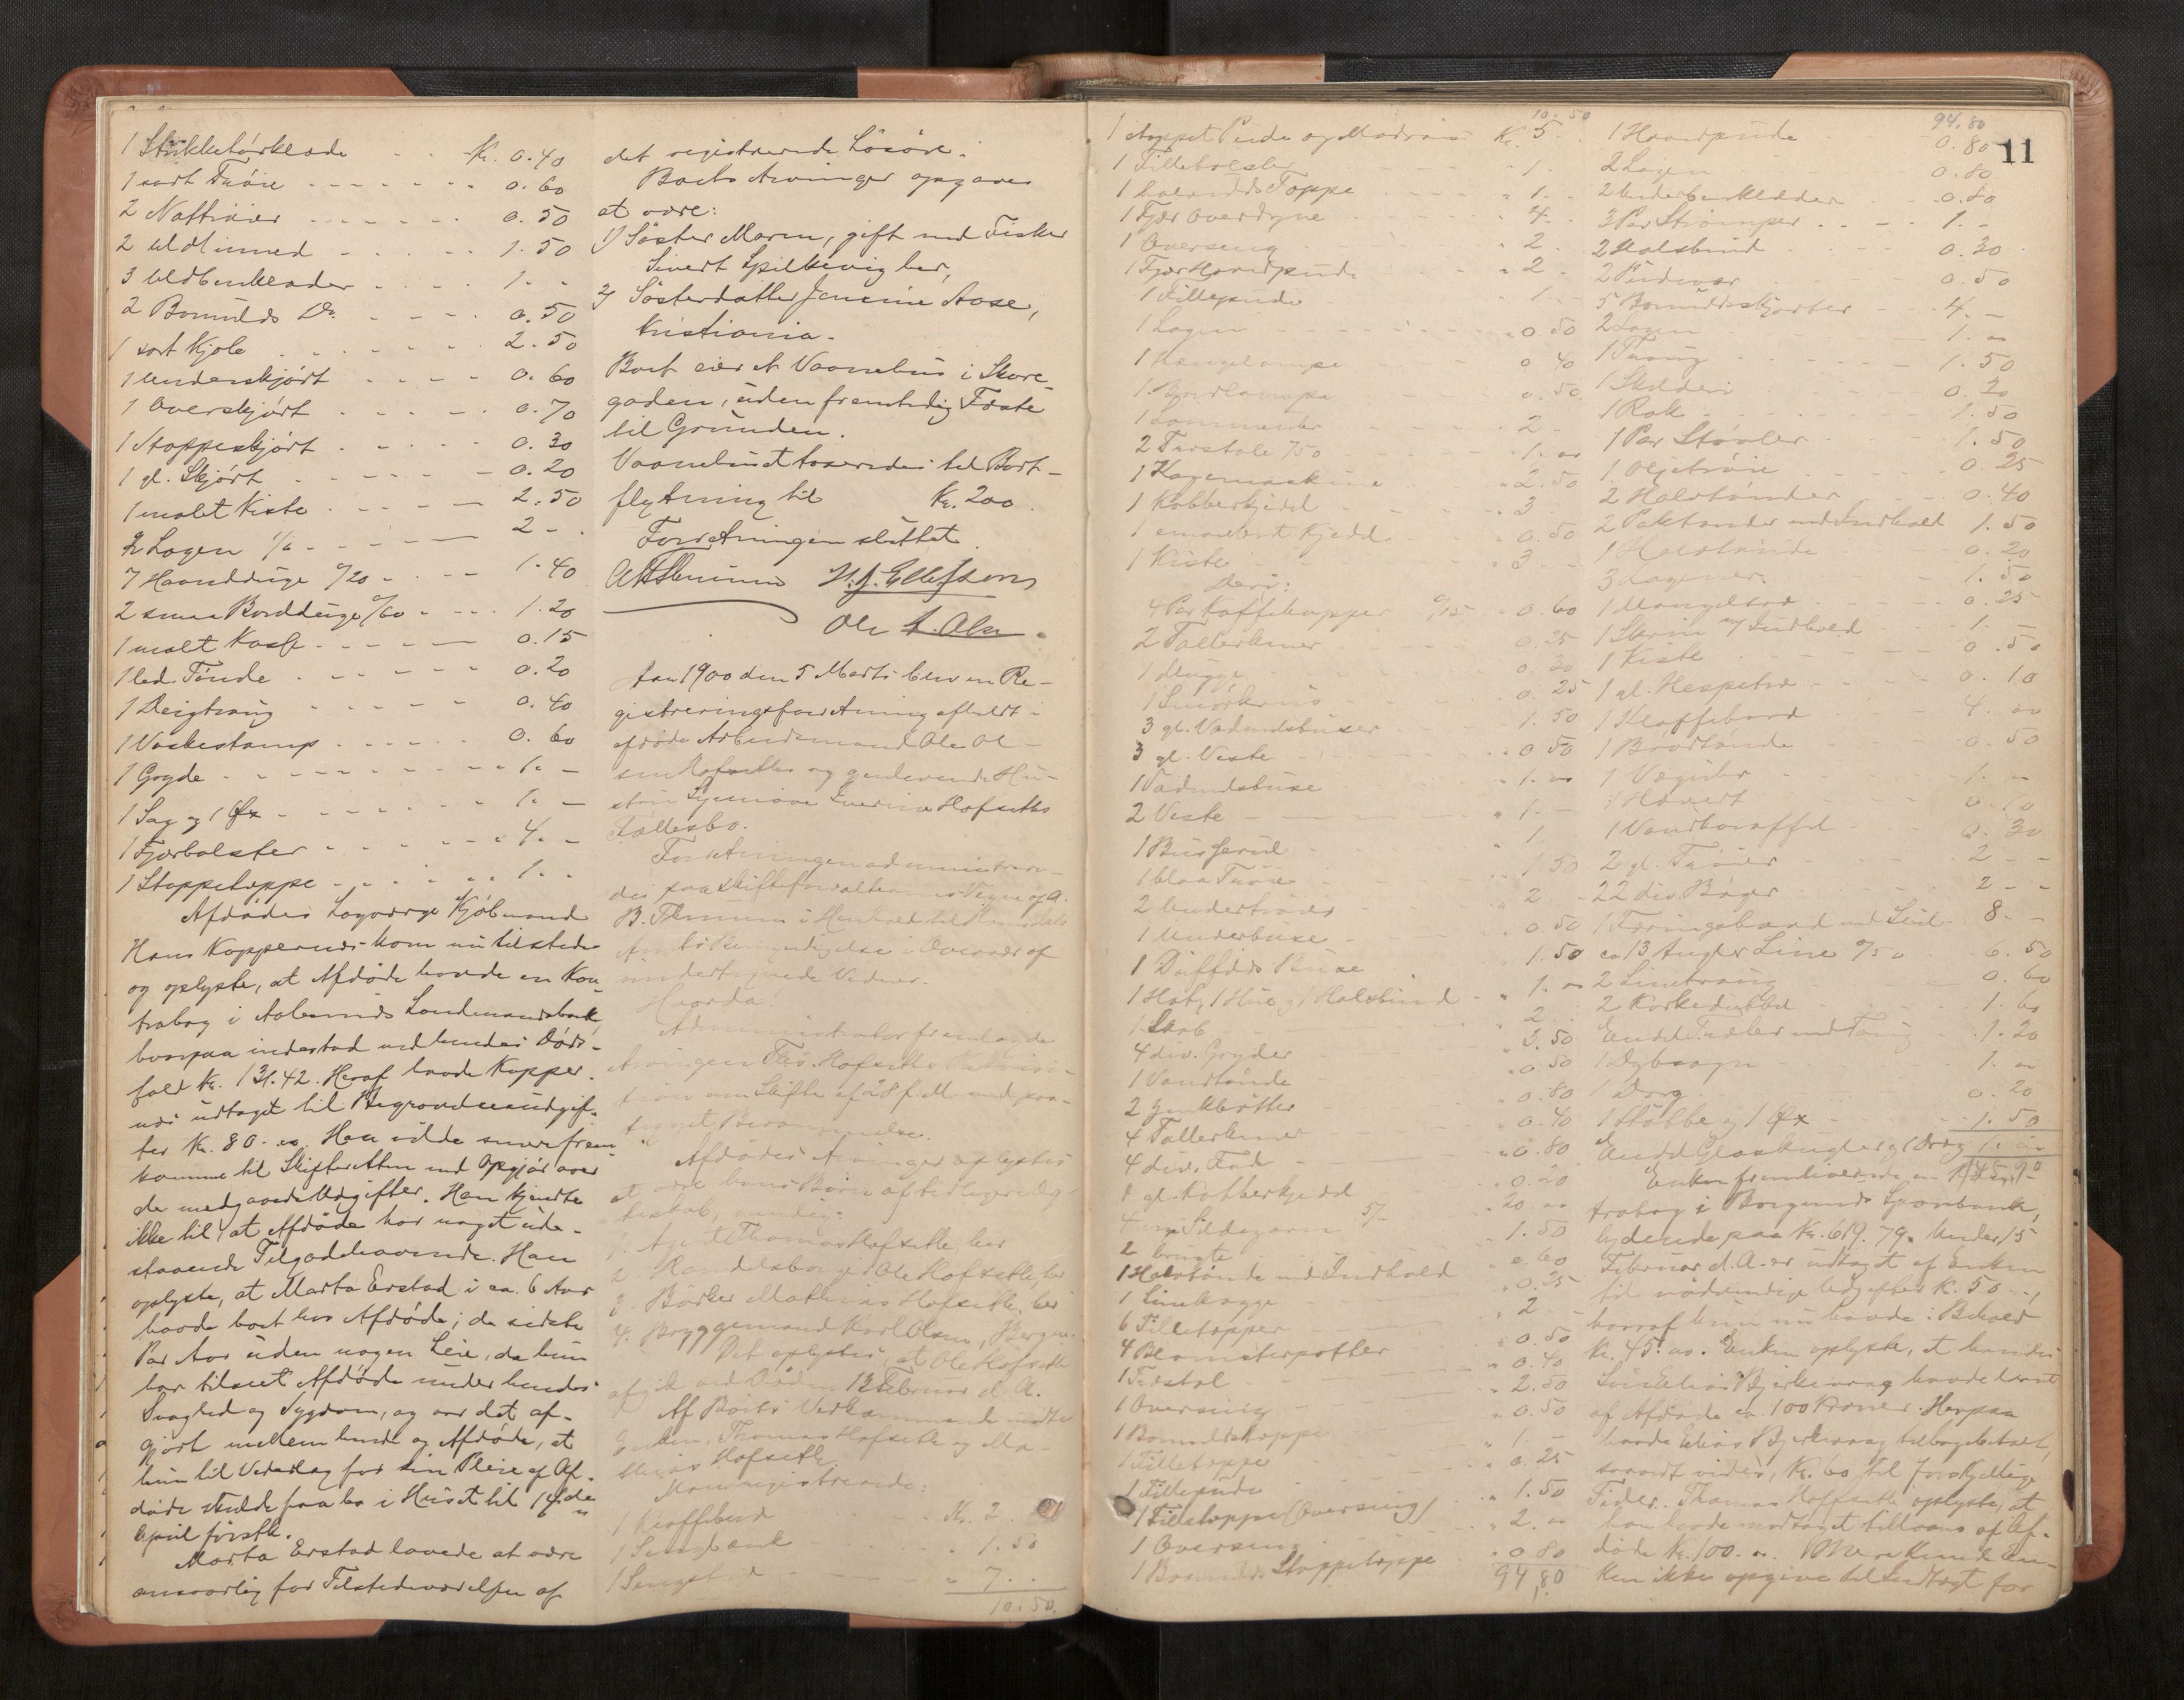 1 Stükketörklæde - - Kr. 0.40
1 sort Trøie - - - 0.60
2 Nattrøier - - - 0.50
2 uldlinned - - - 1.50
3 uldbenklæder - - - 1. -
2 Bomulds Do - - - 0.50
1 sort Kjole - - - 2.50
1 Underskjørt - - - 0.60
1 Overskjørt - - - 0.70
1 Stoppeskjørt - - - 0.30
1 gl. Skjørt - - - 0.20
1 malet Kiste - - - 2.50
2 Lagen 1/- - - - 2 -
7 Haandduge 0/20 - - - 1.40
2 smaa Bordduge 0/60 - - - 1.20
1 malt Kasse - - - 0.15
1 led. Tønde - - - 0.20
1 Deigtraug - - - 0.40
1 Vaskestamp - - - 0.60
1 Gryde - - - 1. -
1 Sag og 1 Øx - - - 1. -
1 Fjærbolster - - - 4. -
1 Stoppetæppe - - - 1. -
Afdødes Lagværge Kjøbmand
Hans Koppernæs kom nu tilstede
og oplyste, at Afdøde havde en Kon-
trabog i Aalesunds Landmandsbank,
hvorpaa indestod ved hendes Døds-
fald Kr. 131.42. Heraf havde Kopper-
næs udtaget til Begravelsesudgif-
ter Kr. 80. Han vilde senere frem-
komme til Skifteretten med Opgjør over
de medgaaede Udgifter. Han kjendte
ikke til, at Afdøde har noget ude-
staaende Tilgodehavende. Han
oplyste, at Marta Erstad i ca. 6 Aar
havde boet hos Afdøde; de sidste
Par Aar uden nogen Leie, da hun
har tilseet Afdøde under hendes
Svaghed og Sygdom, og var det af-
gjort mellem hende og Afdøde, at
hun til Vederlag for sin Pleie af Af-
døde skulde faa bo i Huset til 14de
April førstk.
Marta Erstad lovede at være
ansvarlig for Tilstedeværelsen af
det registrerede Løsøre.
Boets Arvinger opgaves
at være:
1) Søster Maren, gift med Fisker
Sivert Spilkevig her,
2) Søsterdatter Jensine Aase,
Kristiania.
Boet eier et Vaanehus i Skare-
gaden, uden fremtidig Fæste
til Grunden.
Vaanehuset taxeredes til Bort-
flytning til Kr. 200
Forretningen sluttet.
H. J. Ellefsen
Ole A. Alm
Aar 1900 den 5 Marts blev en Re-
gistreringsforretning afholdt i
afdøde Arbeidsmand Ole Ol-
sen Hofseths og gjenlevende Hu-
stru Hofseths
Fællesbo.
Forretningen administrere-
des paa Skifteforvalterens Vegne af A.
B. i Henhold til Romsdals
Amts Bemyndigelse i Overvær af
undertegnede Vidner.
Hvorda:
Administrator fremlagde
Arvingen Ths. Hofseths Rekvisi-
tion om Skifte af 28 f. M. med paa-
tegnet Berammelse.
Afdødes Arvinger oplystes
at være hans Børn af tidligere Æg-
teskab, nemlig:
1. Agent Thomas Hofseth her
2. Handelsborger Ole Hofseth, her
3. Bødker Mathias Hofseth, her
4. Bryggemand Karl Olsen, Bergen.
Det oplystes, at Ole Hofseth
afgik ved Døden 12 Februar d. A.
Af Boets Vedkommende mødte
Enken, Thomas Hofseth og Ma-
thias Hofseth.
Man registrerede:
1 Klaffebord - - Kr. 2. -
1 Sengbænk - - 1.50
1 Sengsted - - 7. -
10.50.
11
10.50
1 stoppet Pude og Madrats Kr. 5. -
1 Fillebolster - - 1. -
1 Tæppe - - 1. -
1 Fjær Overdyne - - 4. -
1 Overseng - - 2. -
1 Fjær Hovedpude - - 2. -
1 Fillepude - - 1. -
1 Lagen - - 0.50
1 Hængelampe - - 0.40
1 Bordlampe - - 0.50
1 Lommeuhr - - 2 -
2 Træstole 0/50 - - 1. -
1 Kogemaskine - - 2.50
1 Kobberkjedel - - 3 -
1 emaileret Kjedel - - 0.50
1 Kiste - - 3 -
deri:
4 Par Kaffekopper 0/15 - - 0.60
2 Tallerkner - - 0.25
1 Mugge - - 0.20
1 Smørkrus - - 0.25
3 gl. Vadmelsbuxer - - 1.50
3 gl. Veste - - 0.50
1 Vadmelsbuxe - - 1. -
2 Veste - - 1. -
1 Busserul - - 1
1 blaa Trøie - - 1.50
2 Undertrøier - - 2 -
1 Underbuxe - - 0.50
1 Düffels Buxe - - 1.50
1 Hat, 1 Hue og 1 Halsbind - - 1. -
1 Skab - - 2 -
4 div. Gryder - - 3.50
1 Vandtønde - - 0.50
2 Jernbøtter - - 0.80
4 Tallerkner - - 0.40
4 div. Fad - - 0.80
1 gl. Kobberkjedel - - 0.20
4 nye Sildegarn 5/- - - 20. -
2 brugte - - 1.50
1 Halvtønde med Indhold - - 0.60
1 Linebagge - - 0.25
6 Filletæpper - - 2 -
4 Blomsterpotter - - 0.50
1 Træstol - - 0.40
1 Overseng - - 2.50
1 Bomuldstæppe - - 0.50
1 Filletæppe - - 1 -
1 Fillepude - - 0.25
1 Filletæppe (Overseng) - - 1.50
1 Overseng - - 2. -
1 Bomulds Stoppetæppe - - 0.80
94,80
94.80
1 Hovedpude - - 0.80
2 Lagen - - 0.80
2 Underbenklæder - - 0.80
3 Par Strømper - - 1. -
2 Halsbind - - 0.30
2 Pudevar - - 0.50
5 Bomuldsskjorter - - 4. -
2 Lagen - - 1. -
1 Traug - - 1.50
1 Skilderi - - 0.20
1 Rok - - 1.50
1 Par Støvler - - 1.50
1 Oljetrøie - - 0.25
2 Halvtønder - - 0.40
2 Paktønder med Indhold - - 1.50
1 Halvtønde - - 0.20
3 Lagener. - - 1.50
1 Mangeltræ - - 0.25
1 Skrin m/ Indhold - - 1. -
1 Kiste - - 0.50
1 gl. Hespetræ - - 0.10
1 Klaffebord - - 4. -
1 Brødtønde - - 0.50
1 Væguhr - - 1. -
1 Vandkaraffel - - 0.30
2 gl. Trøier - - 2 - -
22 div Bøger - - 2 - -
1 Færingsbaad med Seil - - 8. -
ca 13 Angler Line 0/50 - - 6.50
2 Linetraug - - 0.60
2 Korkedubbel - - 1.60
Endel Iler med Taug - - 1.20
1 Dybsagn - - 1. -
1 Dorg - - 0.20
1 Stabbe og 1 Øx - - 1.50
Endel Glaskugler og 1 Dræg 1. -
145.90
Enken fremleverede en Kon-
trabog i Borgunds Sparebank,
lydende paa Kr. 619.79. Under 15
Februar d. A. er udtaget af Enken
til nødvendige Udgifter Kr. 50 -,
hvoraf hun nu havde i Behold
Kr. 45. -. Enken oplyste, at hendes
Søn Elias Bjerkevaag havde laant
af Afdøde ca. 100 Kroner. Herpaa
havde Elias Bjerkevaag tilbagebetalt,
saavidt vides, Kr. 60 til forskjellige
Tider. Thomas Hoffseth oplyste, at
han havde modtaget tillaans af Af-
døde Kr. 100. -.
ken ikke opgive til Indtægt for